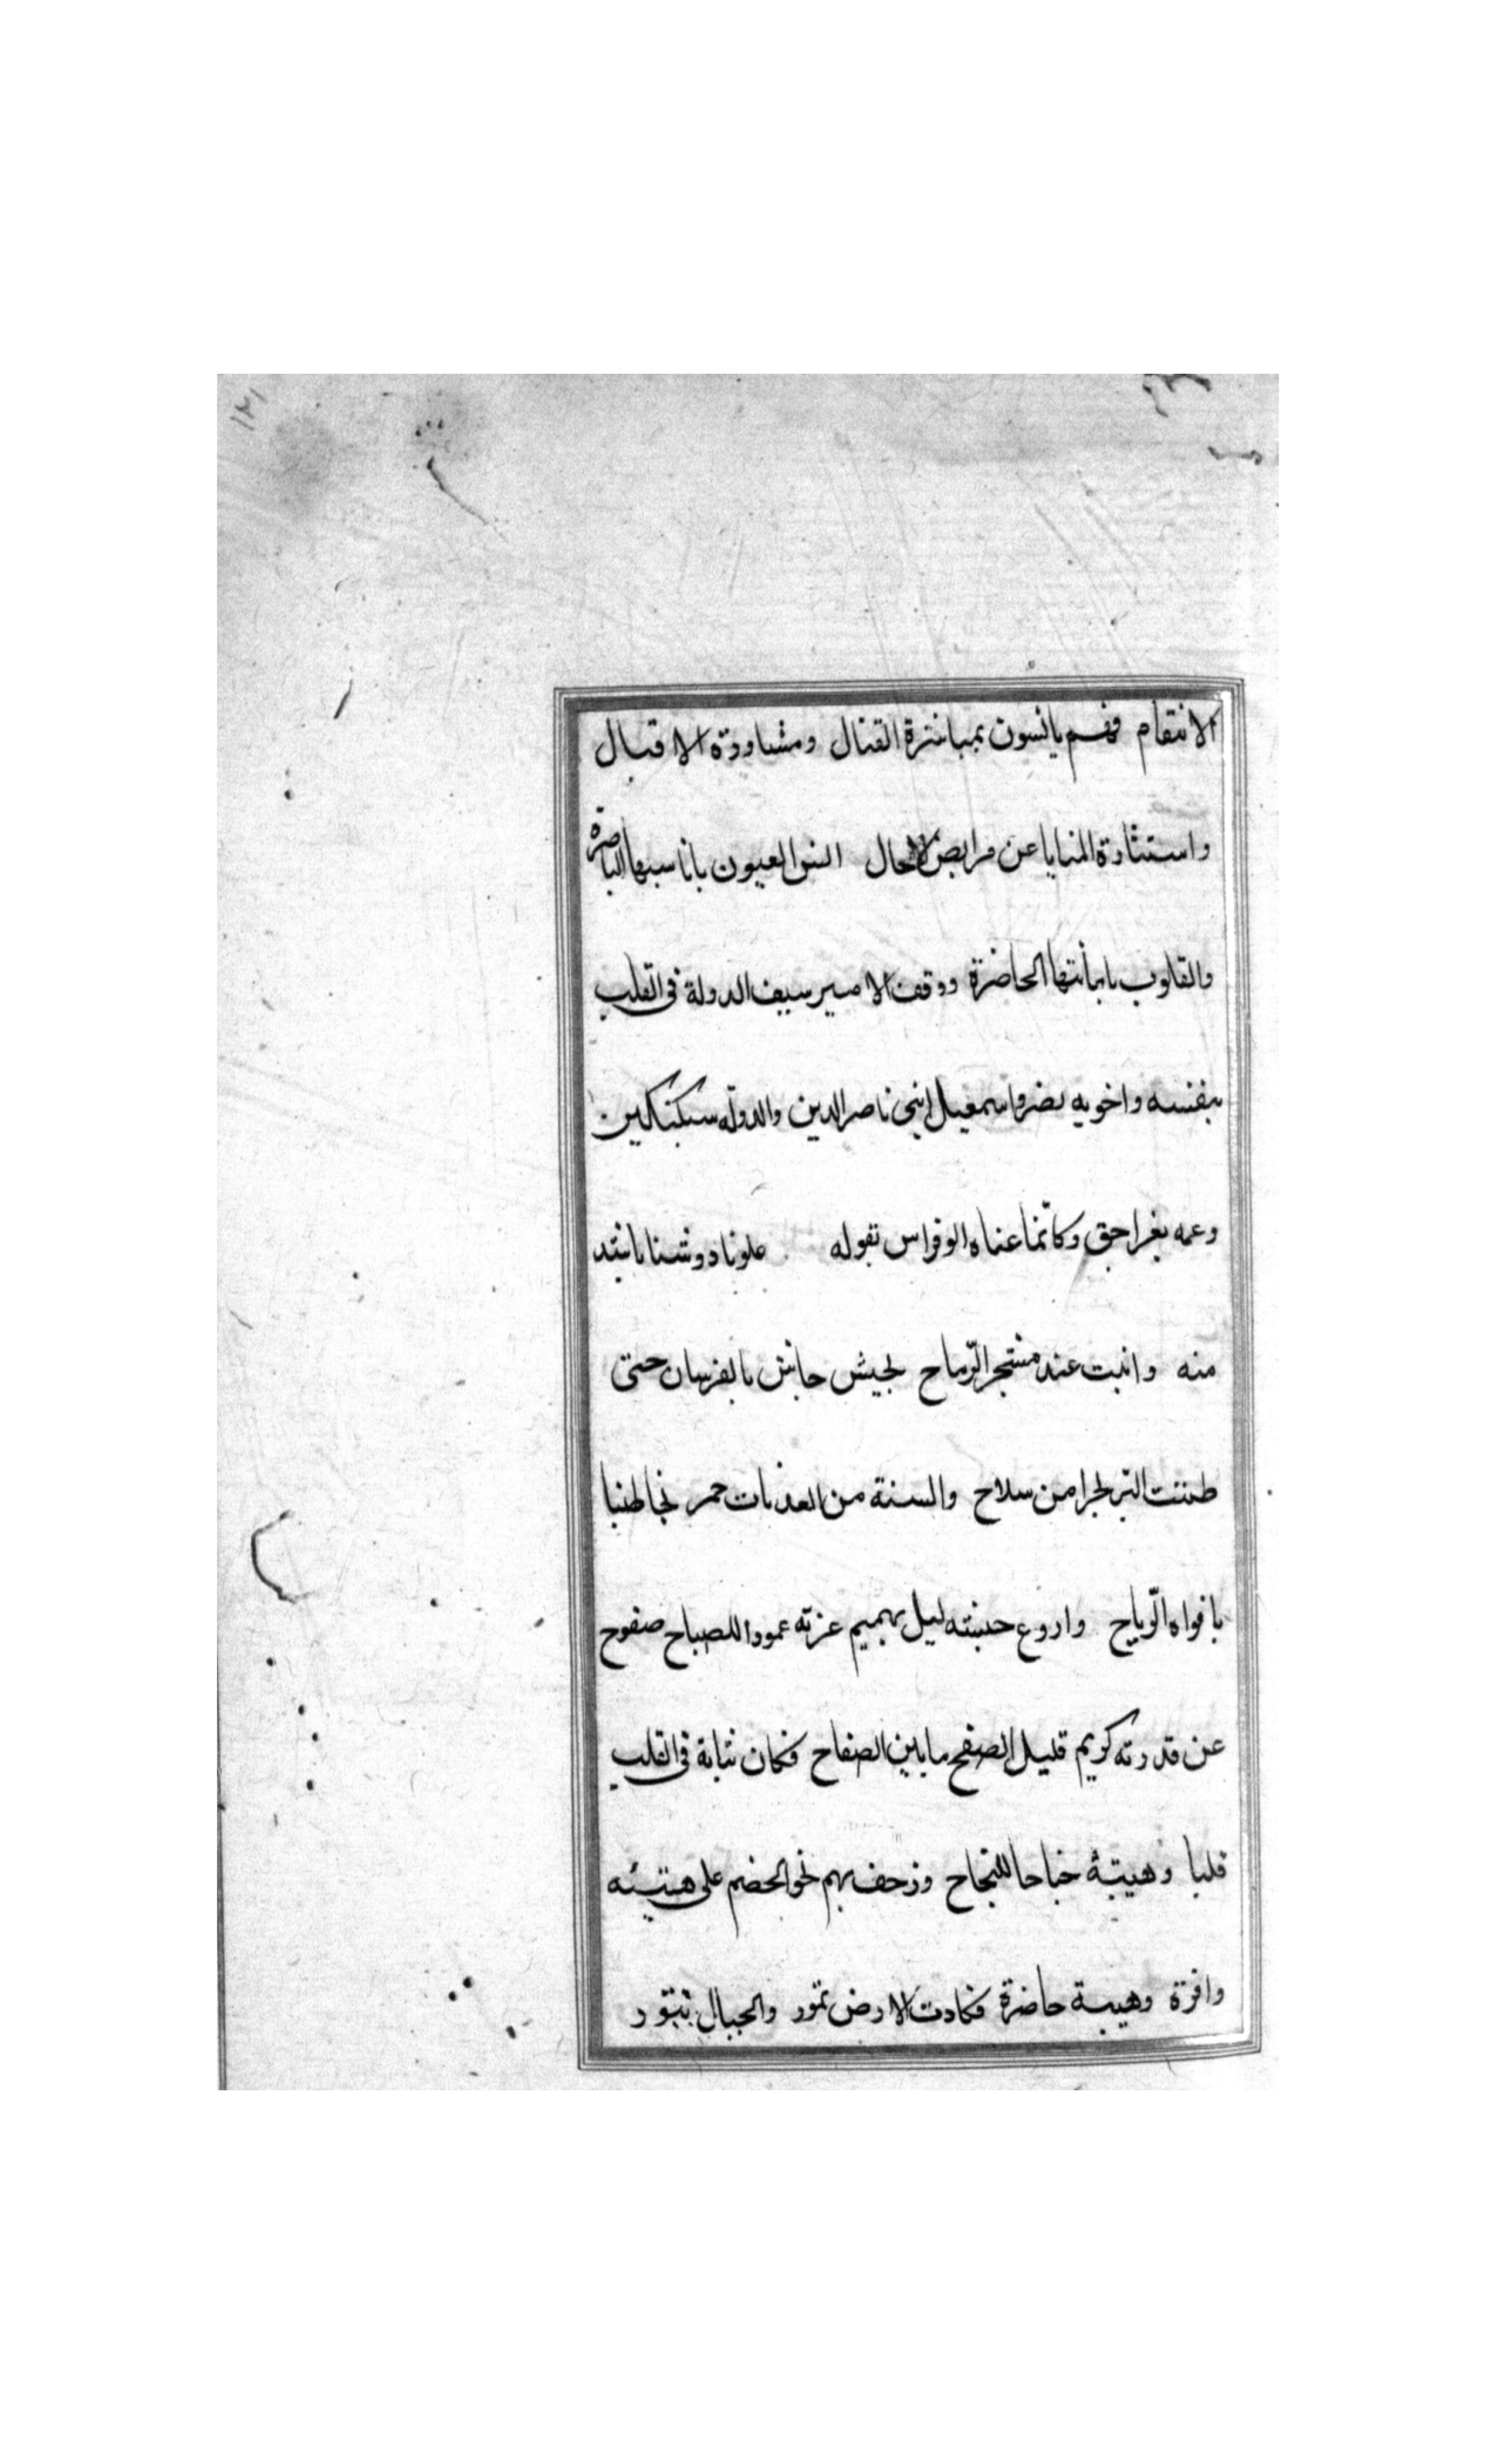 ١٢١
الانتقام فهم يانسون بمباشرة القتال ومشاورة الاقبال
واستثارة المنايا عن مرابض الاجال انس العيون باناسيها الباصرة
والقلوب بامانتها الحاضرة ووقف الامير سيف الدولة في القلب
بنفسه واخويه نصر واسمعيل ابني ناصر الدين والدولة سبكتكين
وعمه بغراجق وكانما عناه ابو فراس بقوله علونا دوشنا باشد
منه واثبت عند مشتجر الرماح لجيش جاش بالفرسان حتى
ظننت البر بحرا من سلاح والسنة من العذبات حمر تخاطبنا
بافواه الرياح واروع جيشه ليل بهيم غرته عمود الصباح صفوح
عن قدرته كريم قليل الصفح ما بين الصفاح فكان ثباته في القلب
قلبا وهيبته جناحا للنجاح وزحف بهم نحو الخصم على هيئه
وافرة وهيبة حاضرة فكادت الارض تمور والجبال تثور